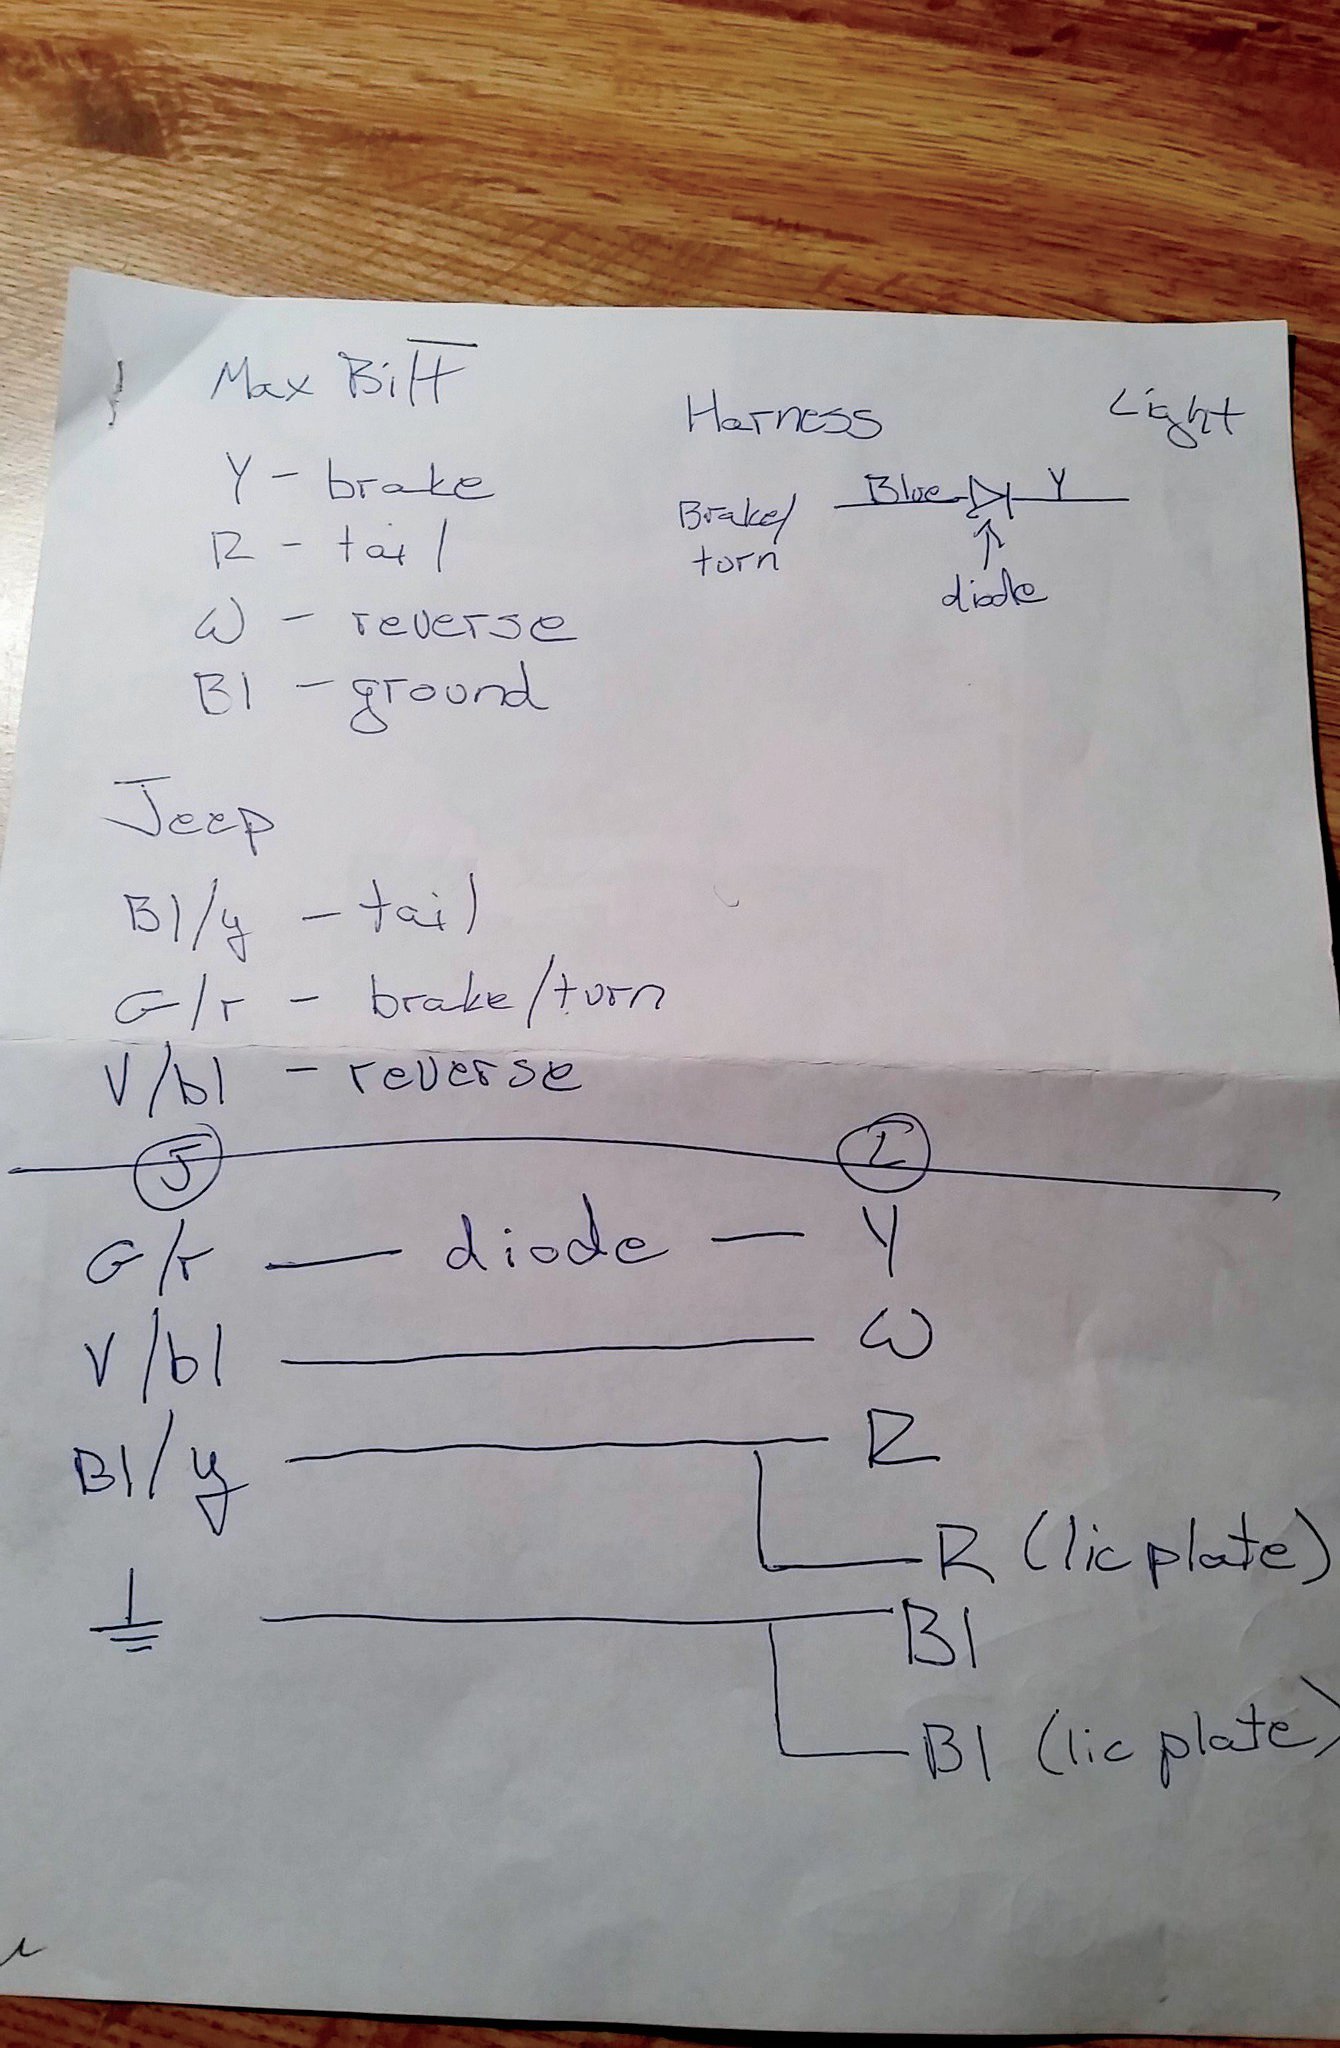 Max Biltt
Y - brake
R - tail
W - reverse
Bl - ground
Harness Light
Brake/ Blue Y
turn
diode
Jeep
Bl/y - tail
G/r - brake/turn
V/bl - reverse
J L
G/r — diode — Y
V/bl W
Bl/y R
R (lic plate)
Bl
Bl (lic plate)